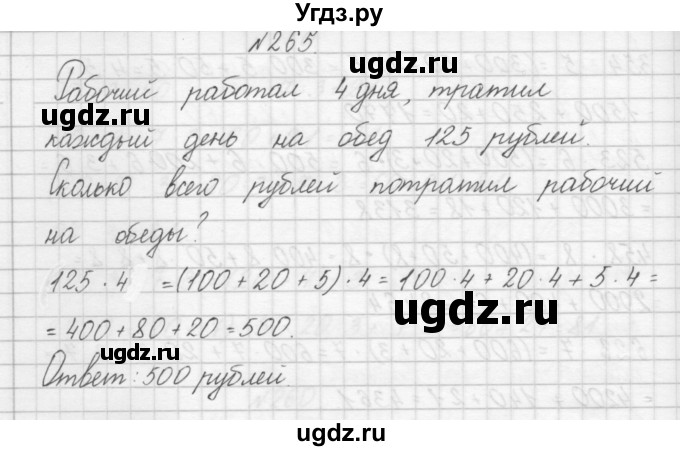 Угдз.ру
№265
Рабочий работал 4 дня, тратил
каждый день на обед 125 рублей.
Сколько всего рублей потратил рабочий
на обеды?
125 · 4 = (100 + 20 + 5) · 4 = 100 · 4 + 20 · 4 + 5 · 4 =
= 400 + 80 + 20 = 500.
Ответ: 500 рублей.
ugdz.ru
ugdz.ru
ugdz.ru
ugdz.ru
ugdz.ru
ugdz.ru